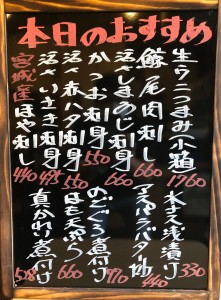 本日のおすすめ
生ウニつまみ小箱 1760
鯨尾肉刺し 660
活〆しまあじ刺身 660
かつお刺身 550
活〆赤ハタ刺身 550
活〆いさき刺身 495
宮城産ほや刺し 440
水ナス浅漬け 330
アスパラバター炒 440
のどぐろ煮付け
はも天ぷら 660
真かれい煮付け